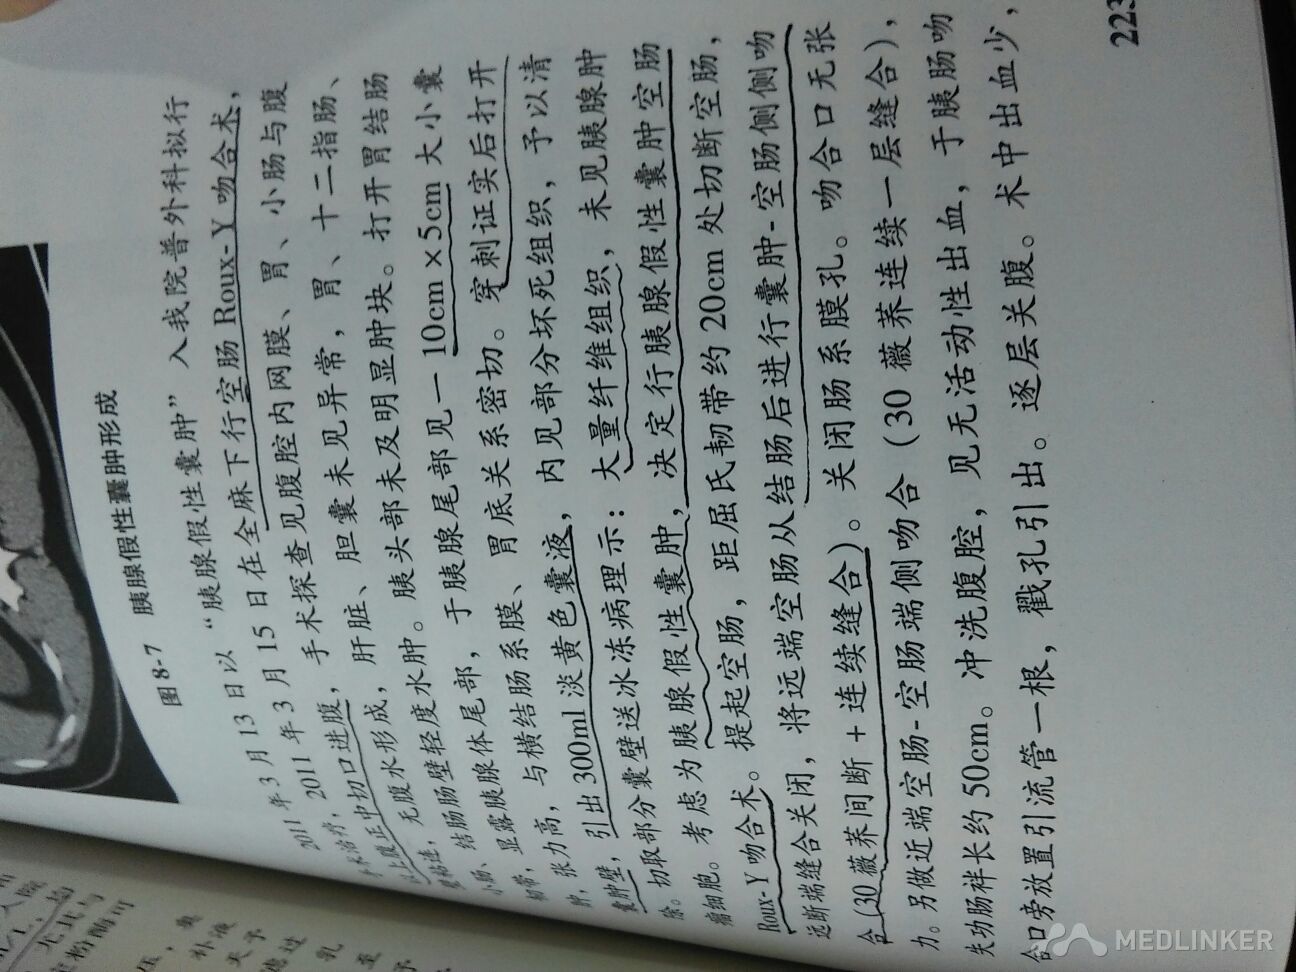 图8-7 胰腺假性囊肿形成
2011年3月13日以“胰腺假性囊肿”入我院普外科拟行
手术治疗，2011年3月15日在全麻下行空肠Roux-Y吻合术，
以上腹正中切口进腹，手术探查见腹腔内网膜、胃、小肠与腹
壁粘连，无腹水形成，肝脏、胆囊未见异常，胃、十二指肠、
小肠、结肠肠壁轻度水肿。胰头部未及明显肿块。打开胃结肠
韧带，显露胰腺体尾部，于胰腺尾部见一10cm×5cm大小囊
肿，张力高，与横结肠系膜、胃底关系密切。穿刺证实后打开
囊肿壁，引出300ml淡黄色囊液，内见部分坏死组织，予以清
除。切取部分囊壁送冰冻病理示：大量纤维组织，未见胰腺肿
瘤细胞。考虑为胰腺假性囊肿，决定行胰腺假性囊肿空肠
Roux-Y吻合术。提起空肠，距屈氏韧带约20cm处切断空肠，
远断端缝合关闭，将远端空肠从结肠后进行囊肿-空肠侧侧吻
合（30薇荞间断+连续缝合）。关闭肠系膜孔。吻合口无张
力。另做近端空肠-空肠端侧吻合（30薇荞连续一层缝合），
失功肠袢长约50cm。冲洗腹腔，见无活动性出血，于胰肠吻
合口旁放置引流管一根，戳孔引出。逐层关腹。术中出血少，
223
MEDLINKER